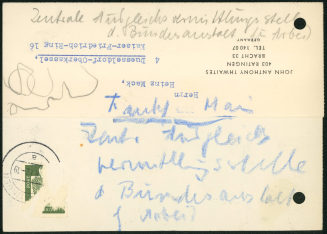 Zentrale Ausgleichsvermittlungsstelle
d. Bundesanstalt (f. Arbeit)
JOHN ANTHONY THWAITES
403 RATINGEN
BRACHT 33
TEL. 34007
GERMANY
Herrn
Heinz Mack,
4 Duesseldorf-Oberkassel,
Kaiser-Friedrich-Ring 16
Frankfurt Main
Zentr Ausgleich
vermittlungsstelle
d Bundesanstalt
f Arbeit